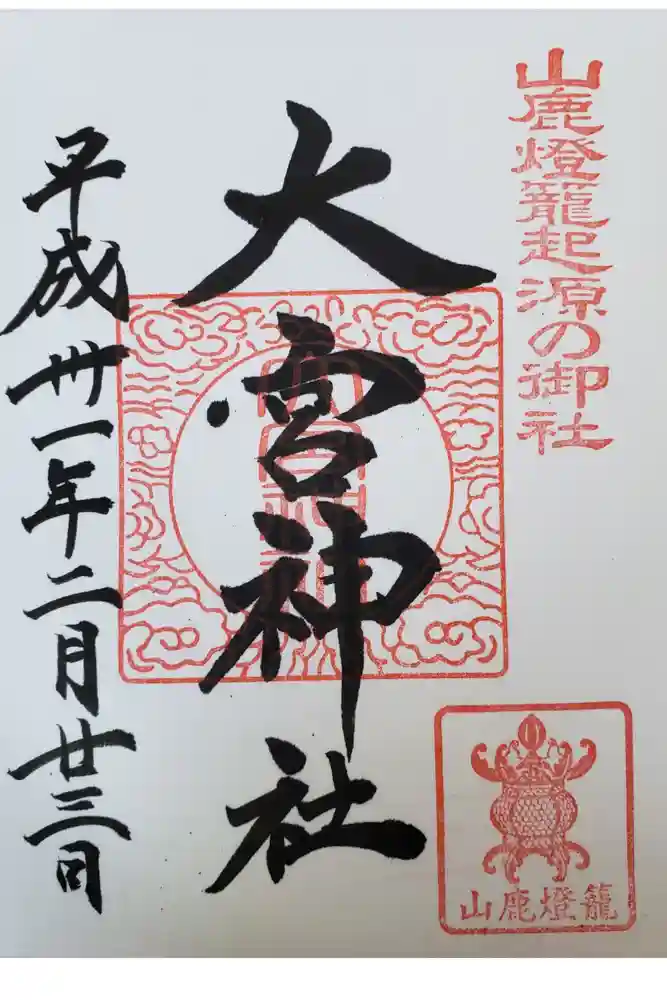 山鹿燈籠起源の御社
大宮神社
平成卅一年二月廿三日
山鹿燈籠